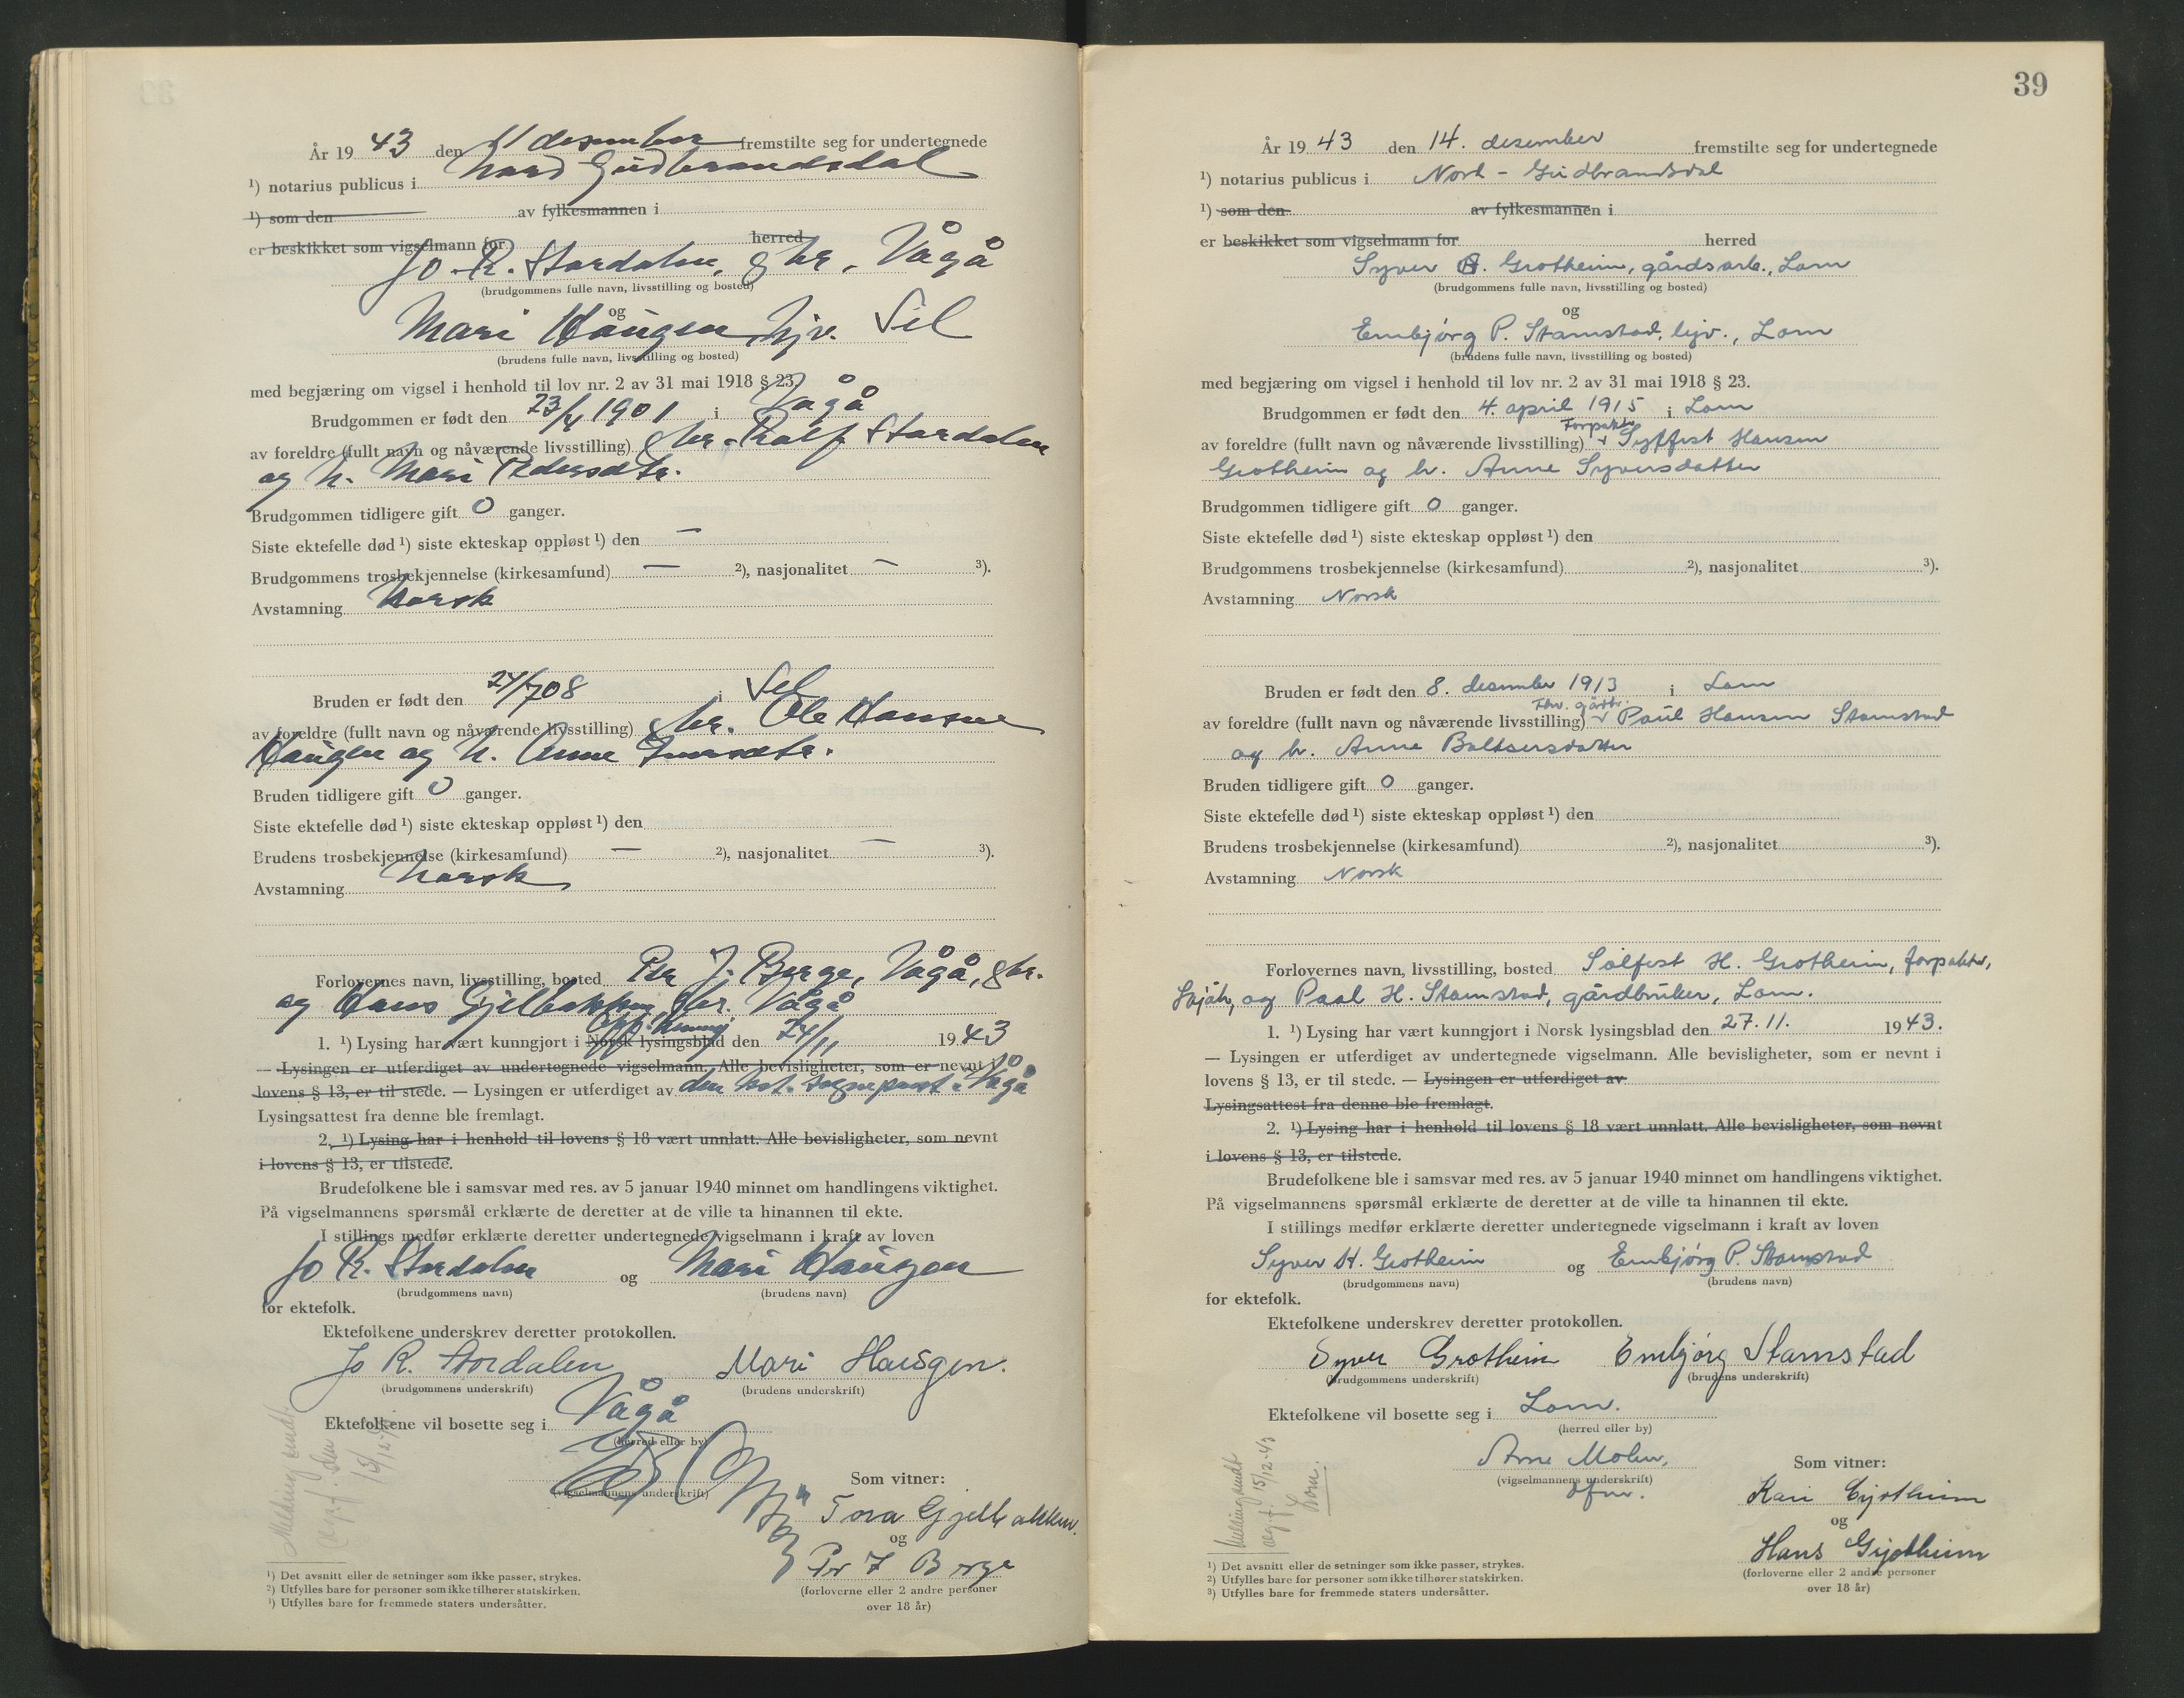 År 19 43 den 11 desember fremstilte seg for undertegnede
¹) notarius publicus i Nord Gudbrandsdal
¹) som den av fylkesmannen i
er beskikket som vigselmann for herred
Jo R. Stordalen, gbr., Vågå
(brudgommens fulle navn, livsstilling og bosted)
og
Mari Haugen hjv. Sel
(brudens fulle navn, livsstilling og bosted)
med begjæring om vigsel i henhold til lov nr. 2 av 31 mai 1918 § 23.
Brudgommen er født den 23/4 1901 i Vågå
av foreldre (fullt navn og nåværende livsstilling) gbr. Rolf Stordalen
og h. Mari Pedersdtr.
Brudgommen tidligere gift 0 ganger.
Siste ektefelle død ¹) siste ekteskap oppløst ¹) den —
Brudgommens trosbekjennelse (kirkesamfund) — ²), nasjonalitet — ³).
Avstamning Norsk
Bruden er født den 24/7 08 i Sel
av foreldre (fullt navn og nåværende livsstilling) gbr. Ole Hansen
Haugen og h. Anne
Bruden tidligere gift 0 ganger.
Siste ektefelle død ¹) siste ekteskap oppløst ¹) den
Brudens trosbekjennelse (kirkesamfund) — ²), nasjonalitet — ³).
Avstamning Norsk
Forlovernes navn, livsstilling, bosted Per J. Berge, Vågå, gbr.
og Hans Gjelbakken, gbr. Vågå
1. ¹) Lysing har vært kunngjort i Norsk lysingsblad den 24/11 1943
— Lysingen er utferdiget av undertegnede vigselmann. Alle bevisligheter, som er nevnt i
lovens § 13, er til stede. — Lysingen er utferdiget av den kst. sogneprest i Vågå
Lysingsattest fra denne ble fremlagt.
2. ¹) Lysing har i henhold til lovens § 18 vært unnlatt. Alle bevisligheter, som nevnt
i lovens § 13, er tilstede.
Brudefolkene ble i samsvar med res. av 5 januar 1940 minnet om handlingens viktighet.
På vigselmannens spørsmål erklærte de deretter at de ville ta hinannen til ekte.
I stillings medfør erklærte deretter undertegnede vigselmann i kraft av loven
Jo R. Stordalen og Mari Haugen
(brudgommens navn) (brudens navn)
for ektefolk.
Ektefolkene underskrev deretter protokollen.
Jo R. Stordalen Mari Haugen.
(brudgommens underskrift) (brudens underskrift)
Ektefolkene vil bosette seg i Vågå
(herred eller by)
(vigselmannens underskrift)
Som vitner:
Tora Gjelbakken
og
Per J Berge
(forloverne eller 2 andre personer
over 18 år)
Melding sendt
¹) Det avsnitt eller de setninger som ikke passer, strykes.
²) Utfylles bare for personer som ikke tilhører statskirken.
³) Utfylles bare for fremmede staters undersåtter.
39
År 19 43 den 14. desember fremstilte seg for undertegnede
¹) notarius publicus i Nord-Gudbrandsdal
¹) som den av fylkesmannen i
er beskikket som vigselmann for herred
Syver H. Grotheim, gårdsarb., Lom
(brudgommens fulle navn, livsstilling og bosted)
og
Embjørg P. Stamstad, hjv., Lom
(brudens fulle navn, livsstilling og bosted)
med begjæring om vigsel i henhold til lov nr. 2 av 31 mai 1918 § 23.
Brudgommen er født den 4. april 1915 i Lom
Forpakter
av foreldre (fullt navn og nåværende livsstilling) Hansen
Grotheim og h. Anne Syversdatter
Brudgommen tidligere gift 0 ganger.
Siste ektefelle død ¹) siste ekteskap oppløst ¹) den
Brudgommens trosbekjennelse (kirkesamfund) ²), nasjonalitet ³).
Avstamning Norsk
Bruden er født den 8. desember 1913 i Lom
av foreldre (fullt navn og nåværende livsstilling) Paul Hansen Stamstad
og h. Anne Baltsersdatter
Bruden tidligere gift 0 ganger.
Siste ektefelle død ¹) siste ekteskap oppløst ¹) den
Brudens trosbekjennelse (kirkesamfund) ²), nasjonalitet ³).
Avstamning Norsk
Forlovernes navn, livsstilling, bosted Sølfest H. Grotheim, forpakter,
Skjåk, og Paal H. Stamstad, gårdbruker, Lom.
1. ¹) Lysing har vært kunngjort i Norsk lysingsblad den 27.11. 1943.
— Lysingen er utferdiget av undertegnede vigselmann. Alle bevisligheter, som er nevnt i
lovens § 13, er til stede. — Lysingen er utferdiget av
Lysingsattest fra denne ble fremlagt.
2. ¹) Lysing har i henhold til lovens § 18 vært unnlatt. Alle bevisligheter, som nevnt
i lovens § 13, er tilstede.
Brudefolkene ble i samsvar med res. av 5 januar 1940 minnet om handlingens viktighet.
På vigselmannens spørsmål erklærte de deretter at de ville ta hinannen til ekte.
I stillings medfør erklærte deretter undertegnede vigselmann i kraft av loven
Syver H. Grotheim og Embjørg P. Stamstad
(brudgommens navn) (brudens navn)
for ektefolk.
Ektefolkene underskrev deretter protokollen.
Syver Grotheim Embjørg Stamstad
(brudgommens underskrift) (brudens underskrift)
Ektefolkene vil bosette seg i Lom.
(herred eller by)
Arne Molen,
(vigselmannens underskrift)
Som vitner:
Kari Grjotheim
og
Hans Grjotheim
(forloverne eller 2 andre personer
over 18 år)
Melding sendt
15/12-43
Lom.
¹) Det avsnitt eller de setninger som ikke passer, strykes.
²) Utfylles bare for personer som ikke tilhører statskirken.
³) Utfylles bare for fremmede staters undersåtter.